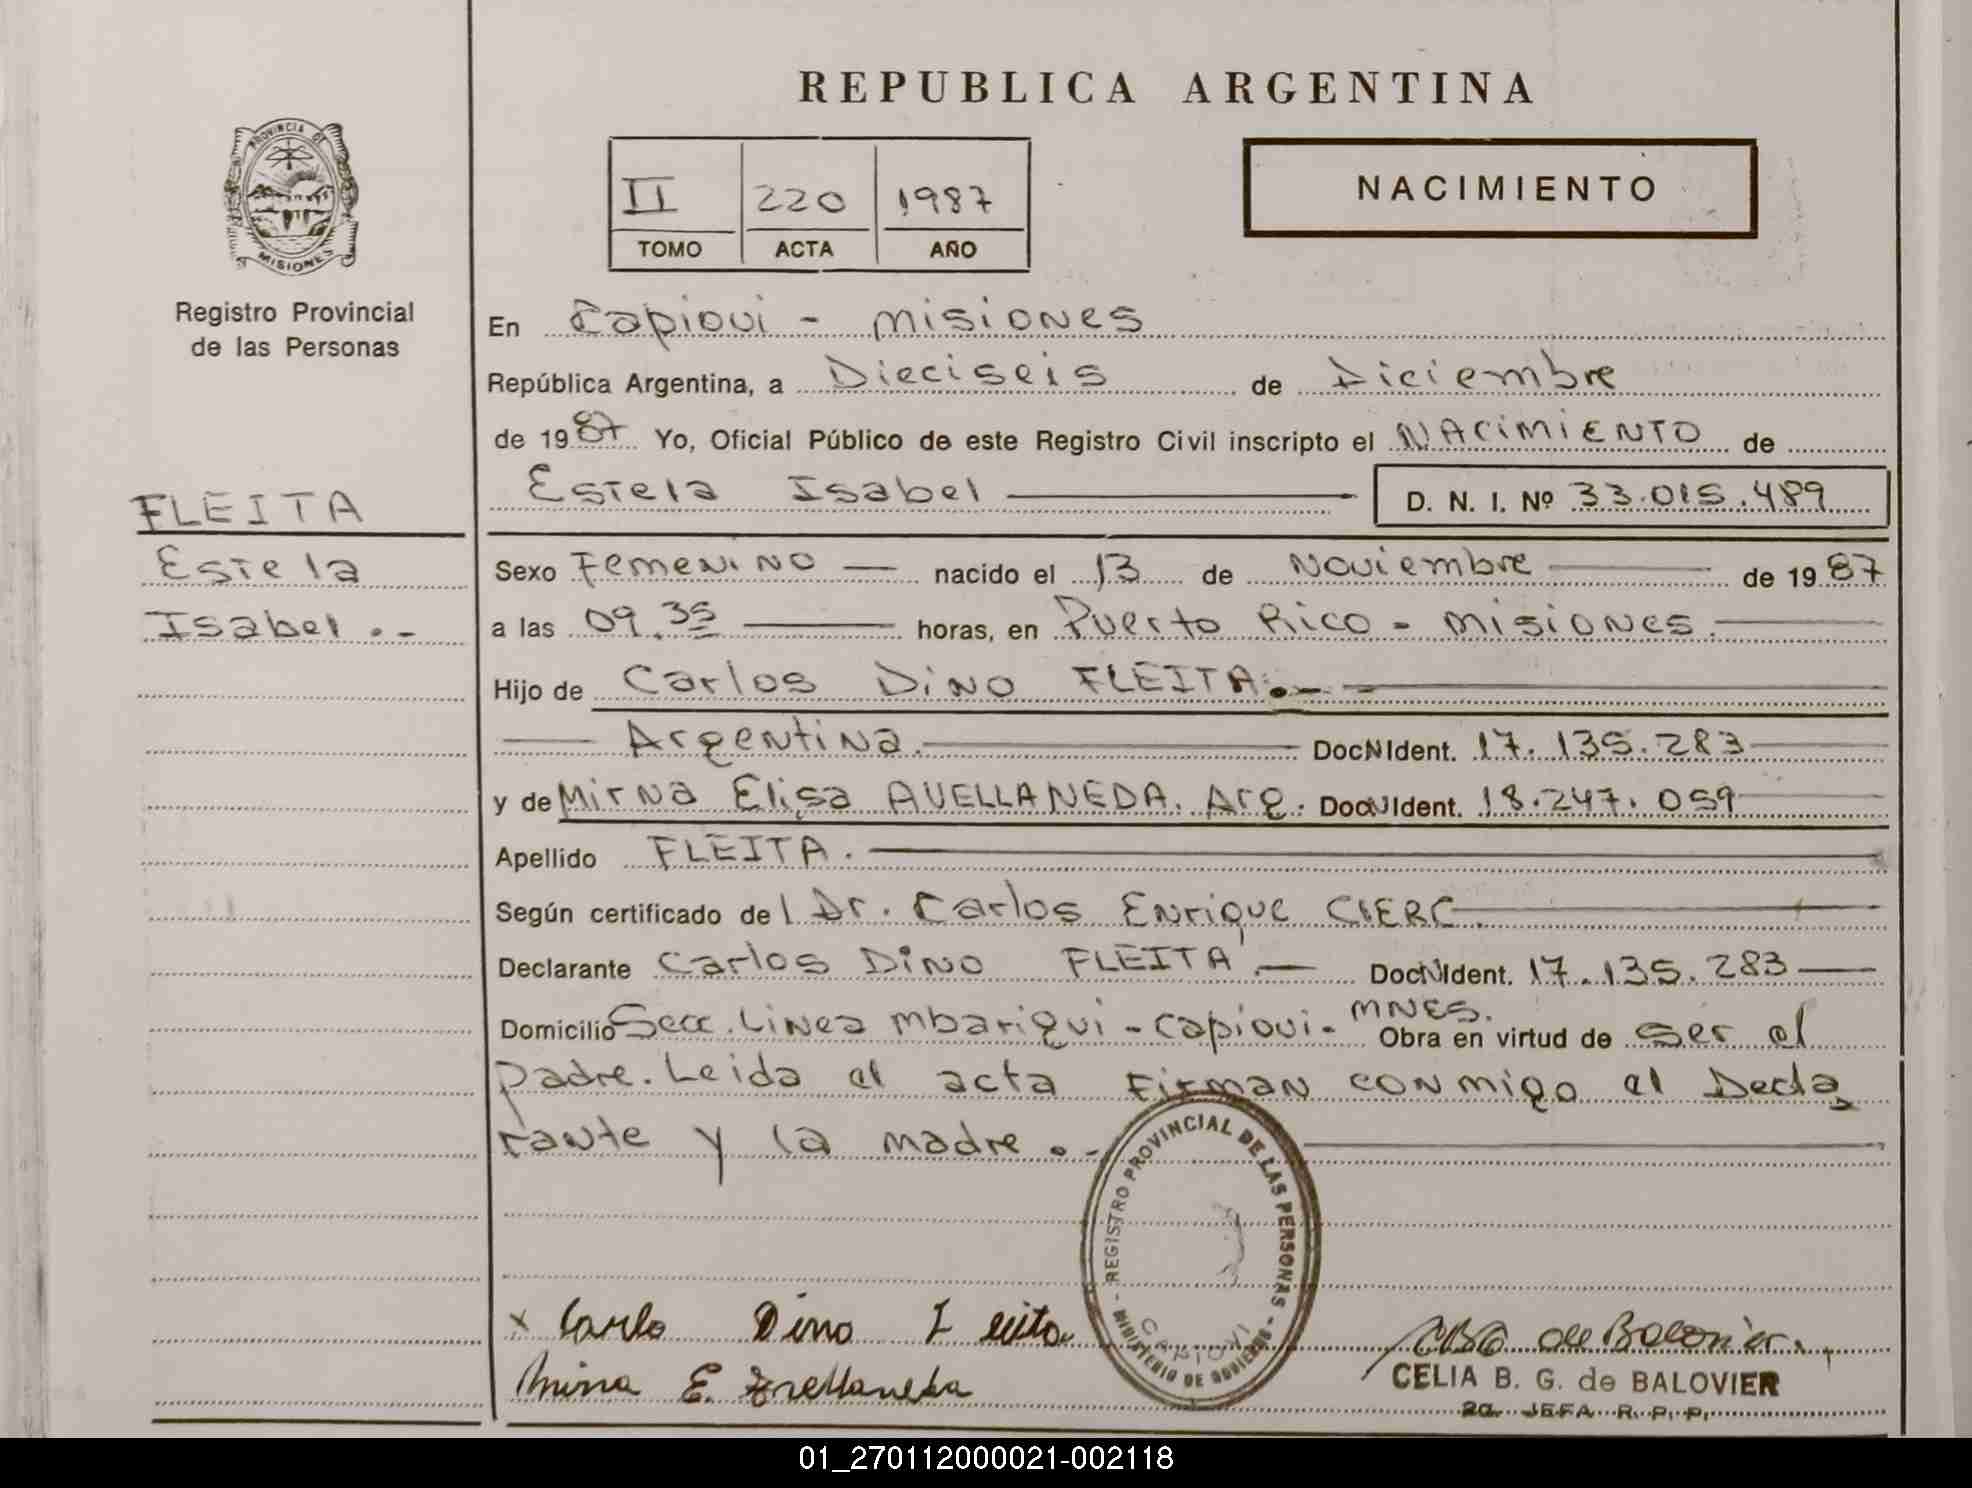 REPUBLICA ARGENTINA
PROVINCIA DE
MISIONES
Registro Provincial
de las Personas
II 220 1987
TOMO ACTA AÑO
NACIMIENTO
En Capiovi - Misiones
República Argentina, a Dieciseis de Diciembre
de 1987 Yo, Oficial Público de este Registro Civil inscripto el NACIMIENTO de
Estela Isabel D. N. I. Nº 33.015.489
FLEITA
Estela
Isabel . -
Sexo Femenino nacido el 13 de Noviembre de 1987
a las 09.35 horas, en Puerto Rico - Misiones.
Hijo de Carlos Dino FLEITA.-
Argentina. DocNIdent. 17.135.283
y de Mirna Elisa AVELLANEDA. Arg. DocNIdent. 18.247.059
Apellido FLEITA.
Según certificado del Dr. Carlos Enrique CIERC.
Declarante Carlos Dino FLEITA.- DocNIdent. 17.135.283
Domicilio Secc. Linea Mbarigui - Capiovi - MNES. Obra en virtud de ser el
padre. Leida el acta Firman conmigo el Decla
rante y la madre . -
REGISTRO PROVINCIAL DE LAS PERSONAS - MINISTERIO DE GOBIERNO -
CAPIOVI
x Carlo Dino Fleita
Mirna E. Avellaneda
CBG de Balovier.
CELIA B. G. de BALOVIER
2a. JEFA R. P. P.
01_270112000021-002118